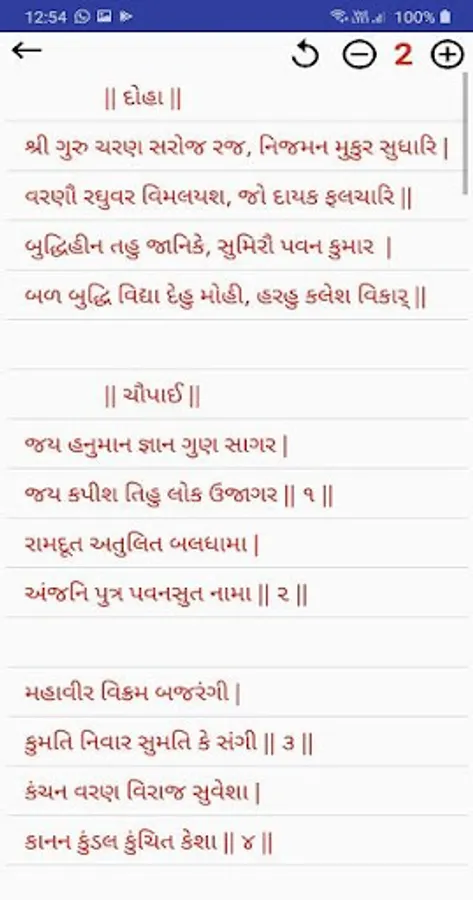 12:54 100%
2
|| દોહા ||
શ્રી ગુરુ ચરણ સરોજ રજ, નિજમન મુકુર સુધારિ |
વરણૌ રઘુવર વિમલયશ, જો દાયક ફલચારિ ||
બુદ્ધિહીન તહુ જાનિકે, સુમિરૌ પવન કુમાર |
બળ બુદ્ધિ વિદ્યા દેહુ મોહી, હરહુ કલેશ વિકાર્ ||
|| ચૌપાઈ ||
જય હનુમાન જ્ઞાન ગુણ સાગર |
જય કપીશ તિહુ લોક ઉજાગર || ૧ ||
રામદૂત અતુલિત બલધામા |
અંજનિ પુત્ર પવનસુત નામા || ૨ ||
મહાવીર વિક્રમ બજરંગી |
કુમતિ નિવાર સુમતિ કે સંગી || ૩ ||
કંચન વરણ વિરાજ સુવેશા |
કાનન કુંડલ કુંચિત કેશા || ૪ ||